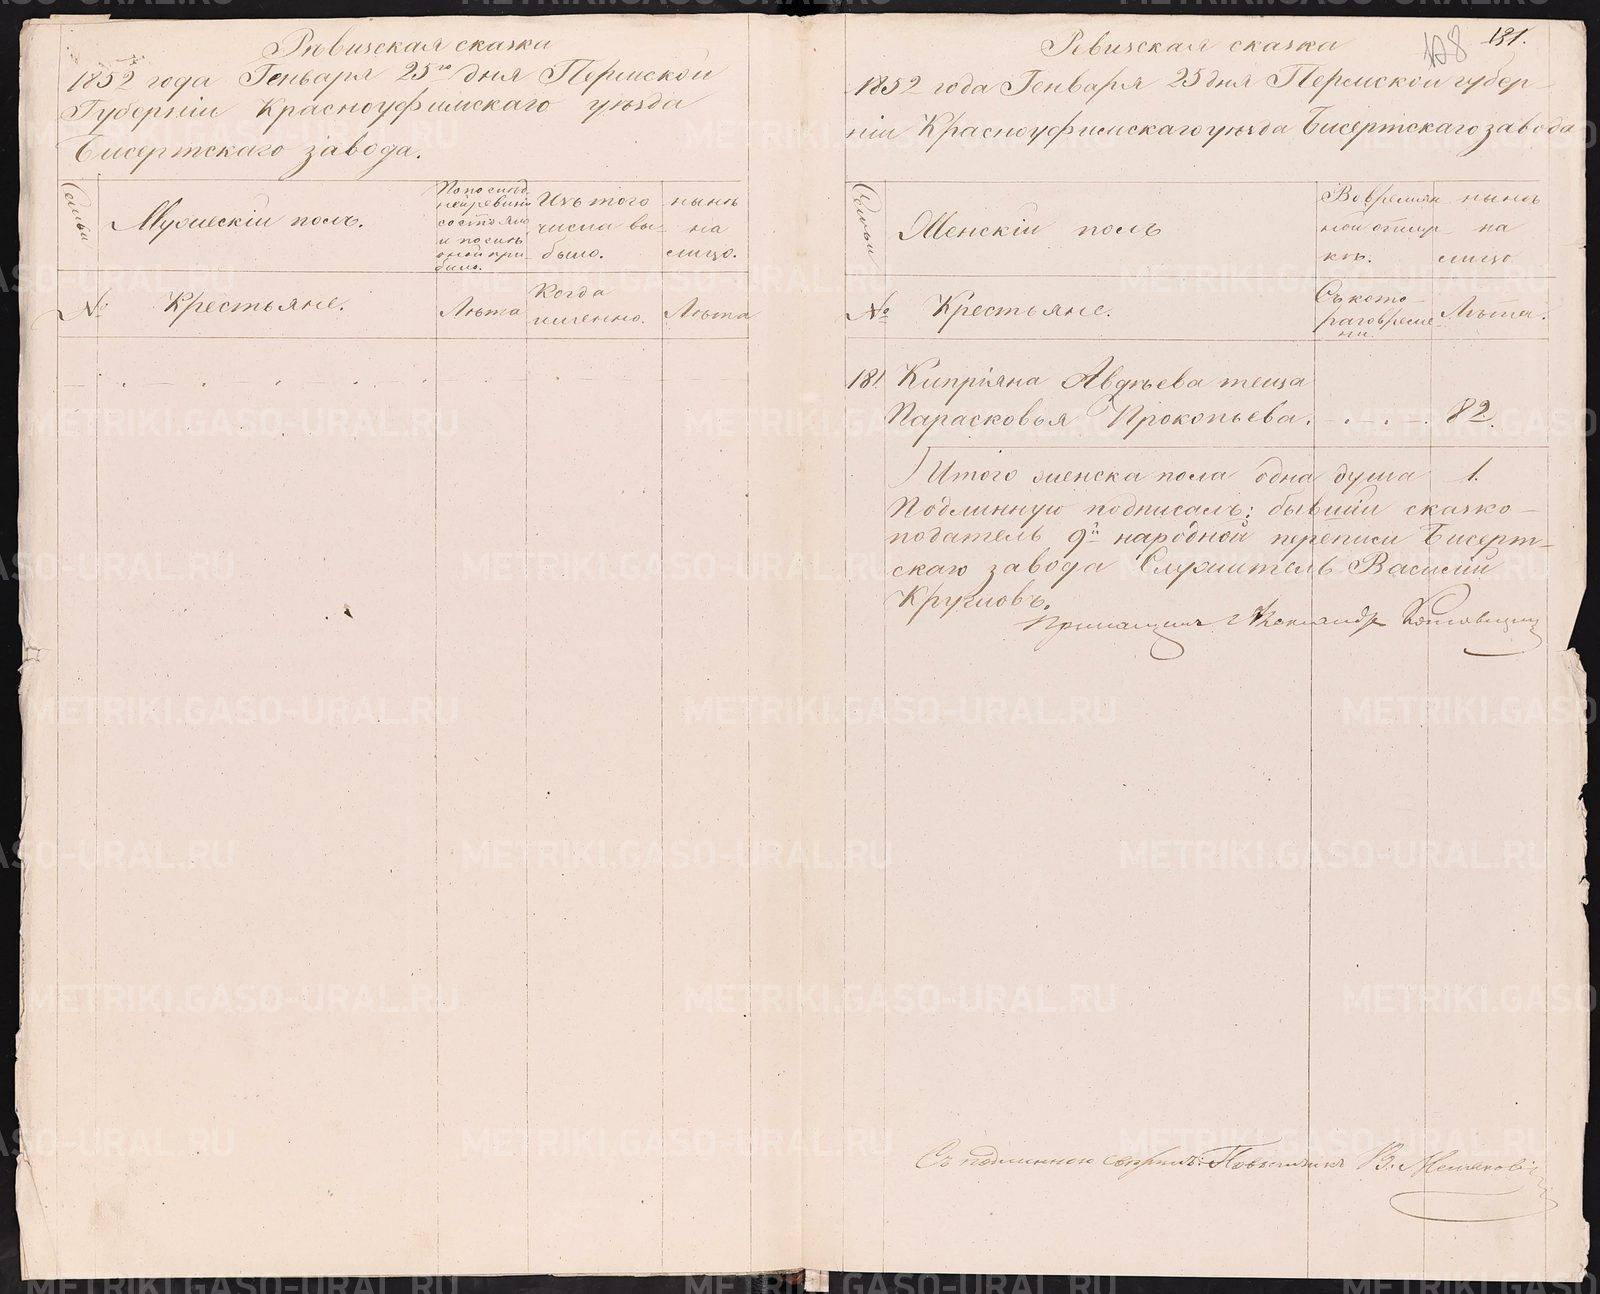 Ревизская сказка
1852 года Генваря 25го дня Пермской
Губерніи Красноуфимскаго уѣзда
Бисертскаго завода.
Семьи
Мужескій полъ.
По послѣд
ней ревизіи
состояло
и послѣ
оной при
было.
Изъ того
числа вы
было.
нынѣ
на
лицо.
№
Крестьяне.
Лѣта
Когда
именно.
Лѣта
128
181.
Ревизская сказка
1852 года Генваря 25 дня Пермской губер
ніи Красноуфимскаго уѣзда Бисертскаго завода
Семьи
Женскій полъ
Во времян
ной отлуч
кѣ.
нынѣ
на
лицо
№
Крестьяне.
Съ кото
раго време
ни.
Лѣта.
181 Кипріяна Авдѣева теща
Парасковья Прокопьева. 82.
Итого женска пола одна душа 1.
Подлинную подписалъ: бывшій сказко-
податель 9й народной переписи Бисерт-
скаго завода Служитель Василій
Кругловъ.
Прикащикъ Александръ
Съ подлинною свѣрялъ: В.
METRIKI.GASO-URAL.RU